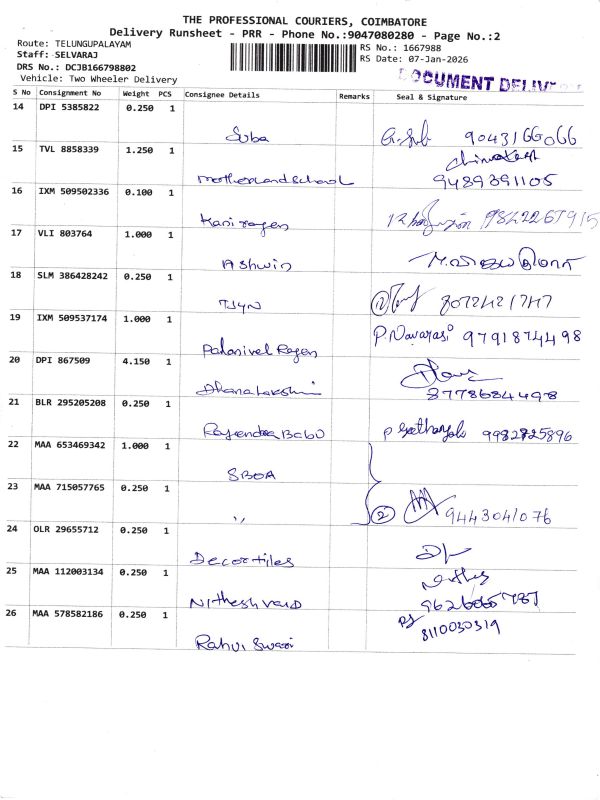 THE PROFESSIONAL COURIERS, COIMBATORE
Delivery Runsheet - PRR - Phone No.:9047080280 - Page No.:2
Route: TELUNGUPALAYAM
Staff: SELVARAJ
DRS No.: DCJB166798802
Vehicle: Two Wheeler Delivery
RS No.: 1667988
RS Date: 07-Jan-2026
DOCUMENT DELIV
S No Consignment No Weight PCS Consignee Details Remarks Seal & Signature
14 DPI 5385822 0.250 1
Suba 9043166066
15 TVL 8858339 1.250 1
Motherland School 9489391105
16 IXM 509502336 0.100 1
Kani rajen
17 VLI 803764 1.000 1
Ashwin
18 SLM 386428242 0.250 1
TJYN
19 IXM 509537174 1.000 1
Palanivel Rajen P.Navarasi 9791874498
20 DPI 867509 4.150 1
Dhanalakshmi 8778684498
21 BLR 295205208 0.250 1
Rajendra Babu
22 MAA 653469342 1.000 1
SBOA
23 MAA 715057765 0.250 1
,, 2 9443041076
24 OLR 29655712 0.250 1
Decortiles
25 MAA 112003134 0.250 1
Nithesh
26 MAA 578582186 0.250 1
Rahul Swasi 8110030319